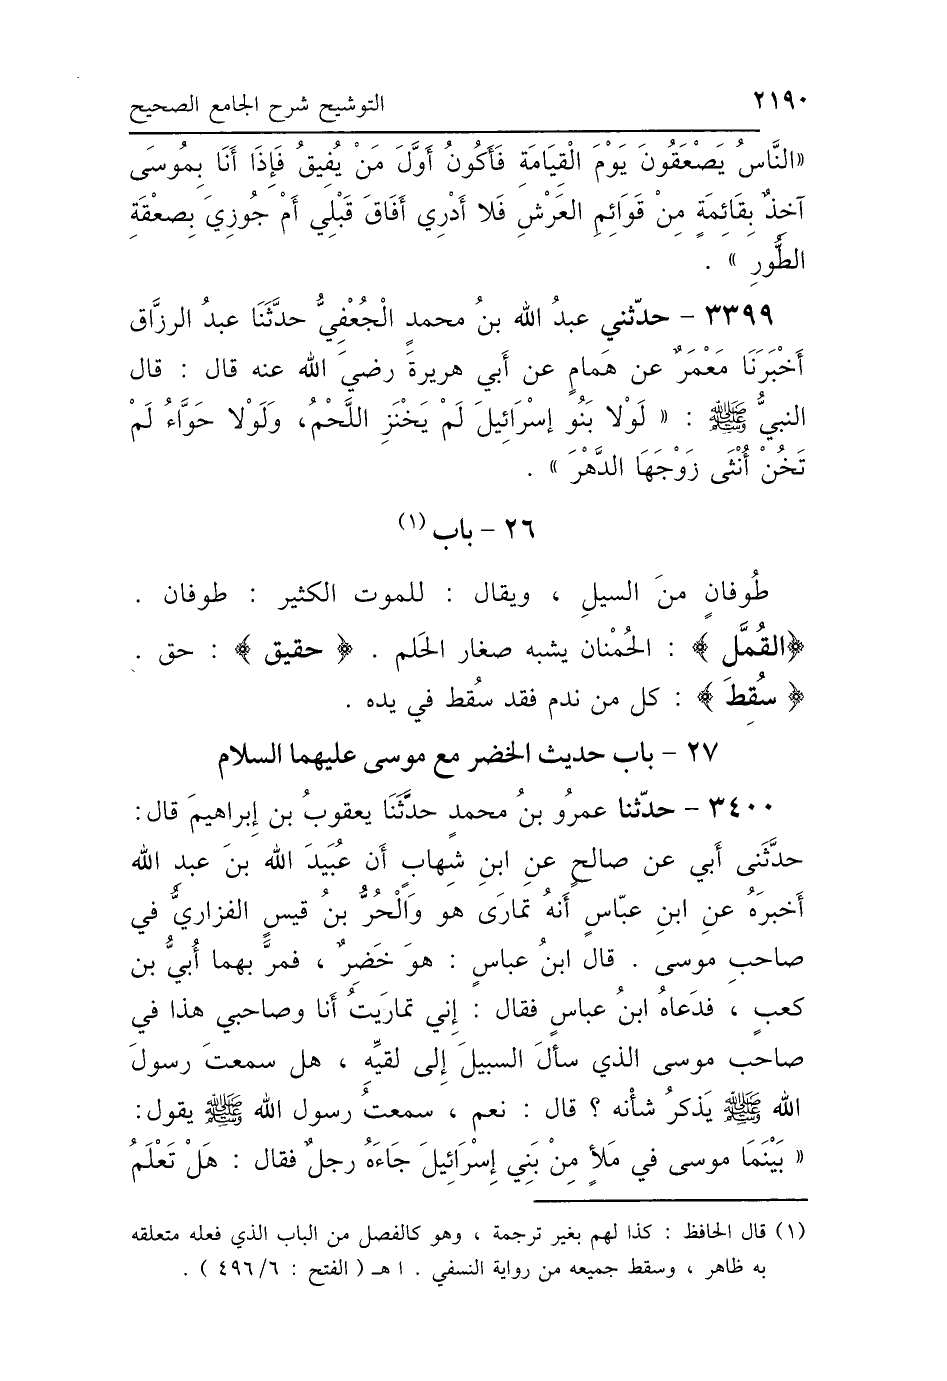 ٢١٩٠ التوشيح شرح الجامع الصحيح
«النَّاسُ يَصْعَقُونَ يَوْمَ الْقِيَامَةِ فَأَكُونُ أَوَّلَ مَنْ يُفِيقُ فَإِذَا أَنَا بِمُوسَى
آخِذٌ بِقَائِمَةٍ مِنْ قَوَائِمِ العَرْشِ فَلا أَدْرِي أَفَاقَ قَبْلِي أَمْ جُوزِيَ بِصعْقَةِ
الطُّورِ » .
٣٣٩٩ - حدّثني عبدُ الله بنُ محمدٍ الْجُعْفِيُّ حدَّثَنَا عبدُ الرزَّاق
أَخْبَرَنَا مَعْمَرٌ عن همامٍ عن أبي هريرةَ رضيَ الله عنه قال : قال
النبيُّ ﷺ : « لَوْلا بَنُو إسْرَائِيلَ لَمْ يَخْنَزِ اللَّحْمُ، وَلَوْلا حَوَّاءُ لَمْ
تَخُنْ أُنْثَى زَوْجَهَا الدَّهْرَ » .
٢٦ - باب (١)
طُوفانٍ منَ السيلِ ، ويقال : للموت الكثير : طوفان .
﴿القُمَّل ﴾ : الحُمْنان يشبه صغار الحَلم . ﴿ حقيق ﴾ : حق .
﴿ سُقِطَ ﴾ : كل من ندم فقد سُقط في يده .
٢٧ - باب حديث الخضر مع موسى عليهما السلام
٣٤٠٠ - حدّثنا عمرُو بنُ محمدٍ حدَّثَنَا يعقوبُ بن إبراهيمَ قال :
حدَّثَنى أبي عن صالحٍ عن ابنِ شهابٍ أن عُبَيدَ الله بنَ عبد الله
أخبرَهُ عنِ ابنِ عبّاسٍ أنهُ تمارَى هو وَالْحُرُّ بنُ قيسٍ الفزاريُّ في
صاحبِ موسى . قال ابنُ عباسٍ : هوَ خَضِرٌ ، فمرَّ بهما أُبيُّ بن
كعبٍ ، فدَعاهُ ابنُ عباسٍ فقال : إني تمارَيتُ أنا وصاحبي هذا في
صاحب موسى الذي سألَ السبيلَ إلى لقيِّهِ ، هل سمعتَ رسولَ
الله ﷺ يَذكرُ شأْنه ؟ قال : نعم ، سمعتُ رسول الله ﷺ يقول :
« بَيْنَمَا موسى في مَلأٍ مِنْ بَنِي إسْرَائِيلَ جَاءَهُ رجلٌ فقال : هَلْ تَعْلَمُ
(١) قال الحافظ : كذا لهم بغير ترجمة ، وهو كالفصل من الباب الذي فعله متعلقه
به ظاهر ، وسقط جميعه من رواية النسفي . ا هـ ( الفتح : ٤٩٦/٦ ) .